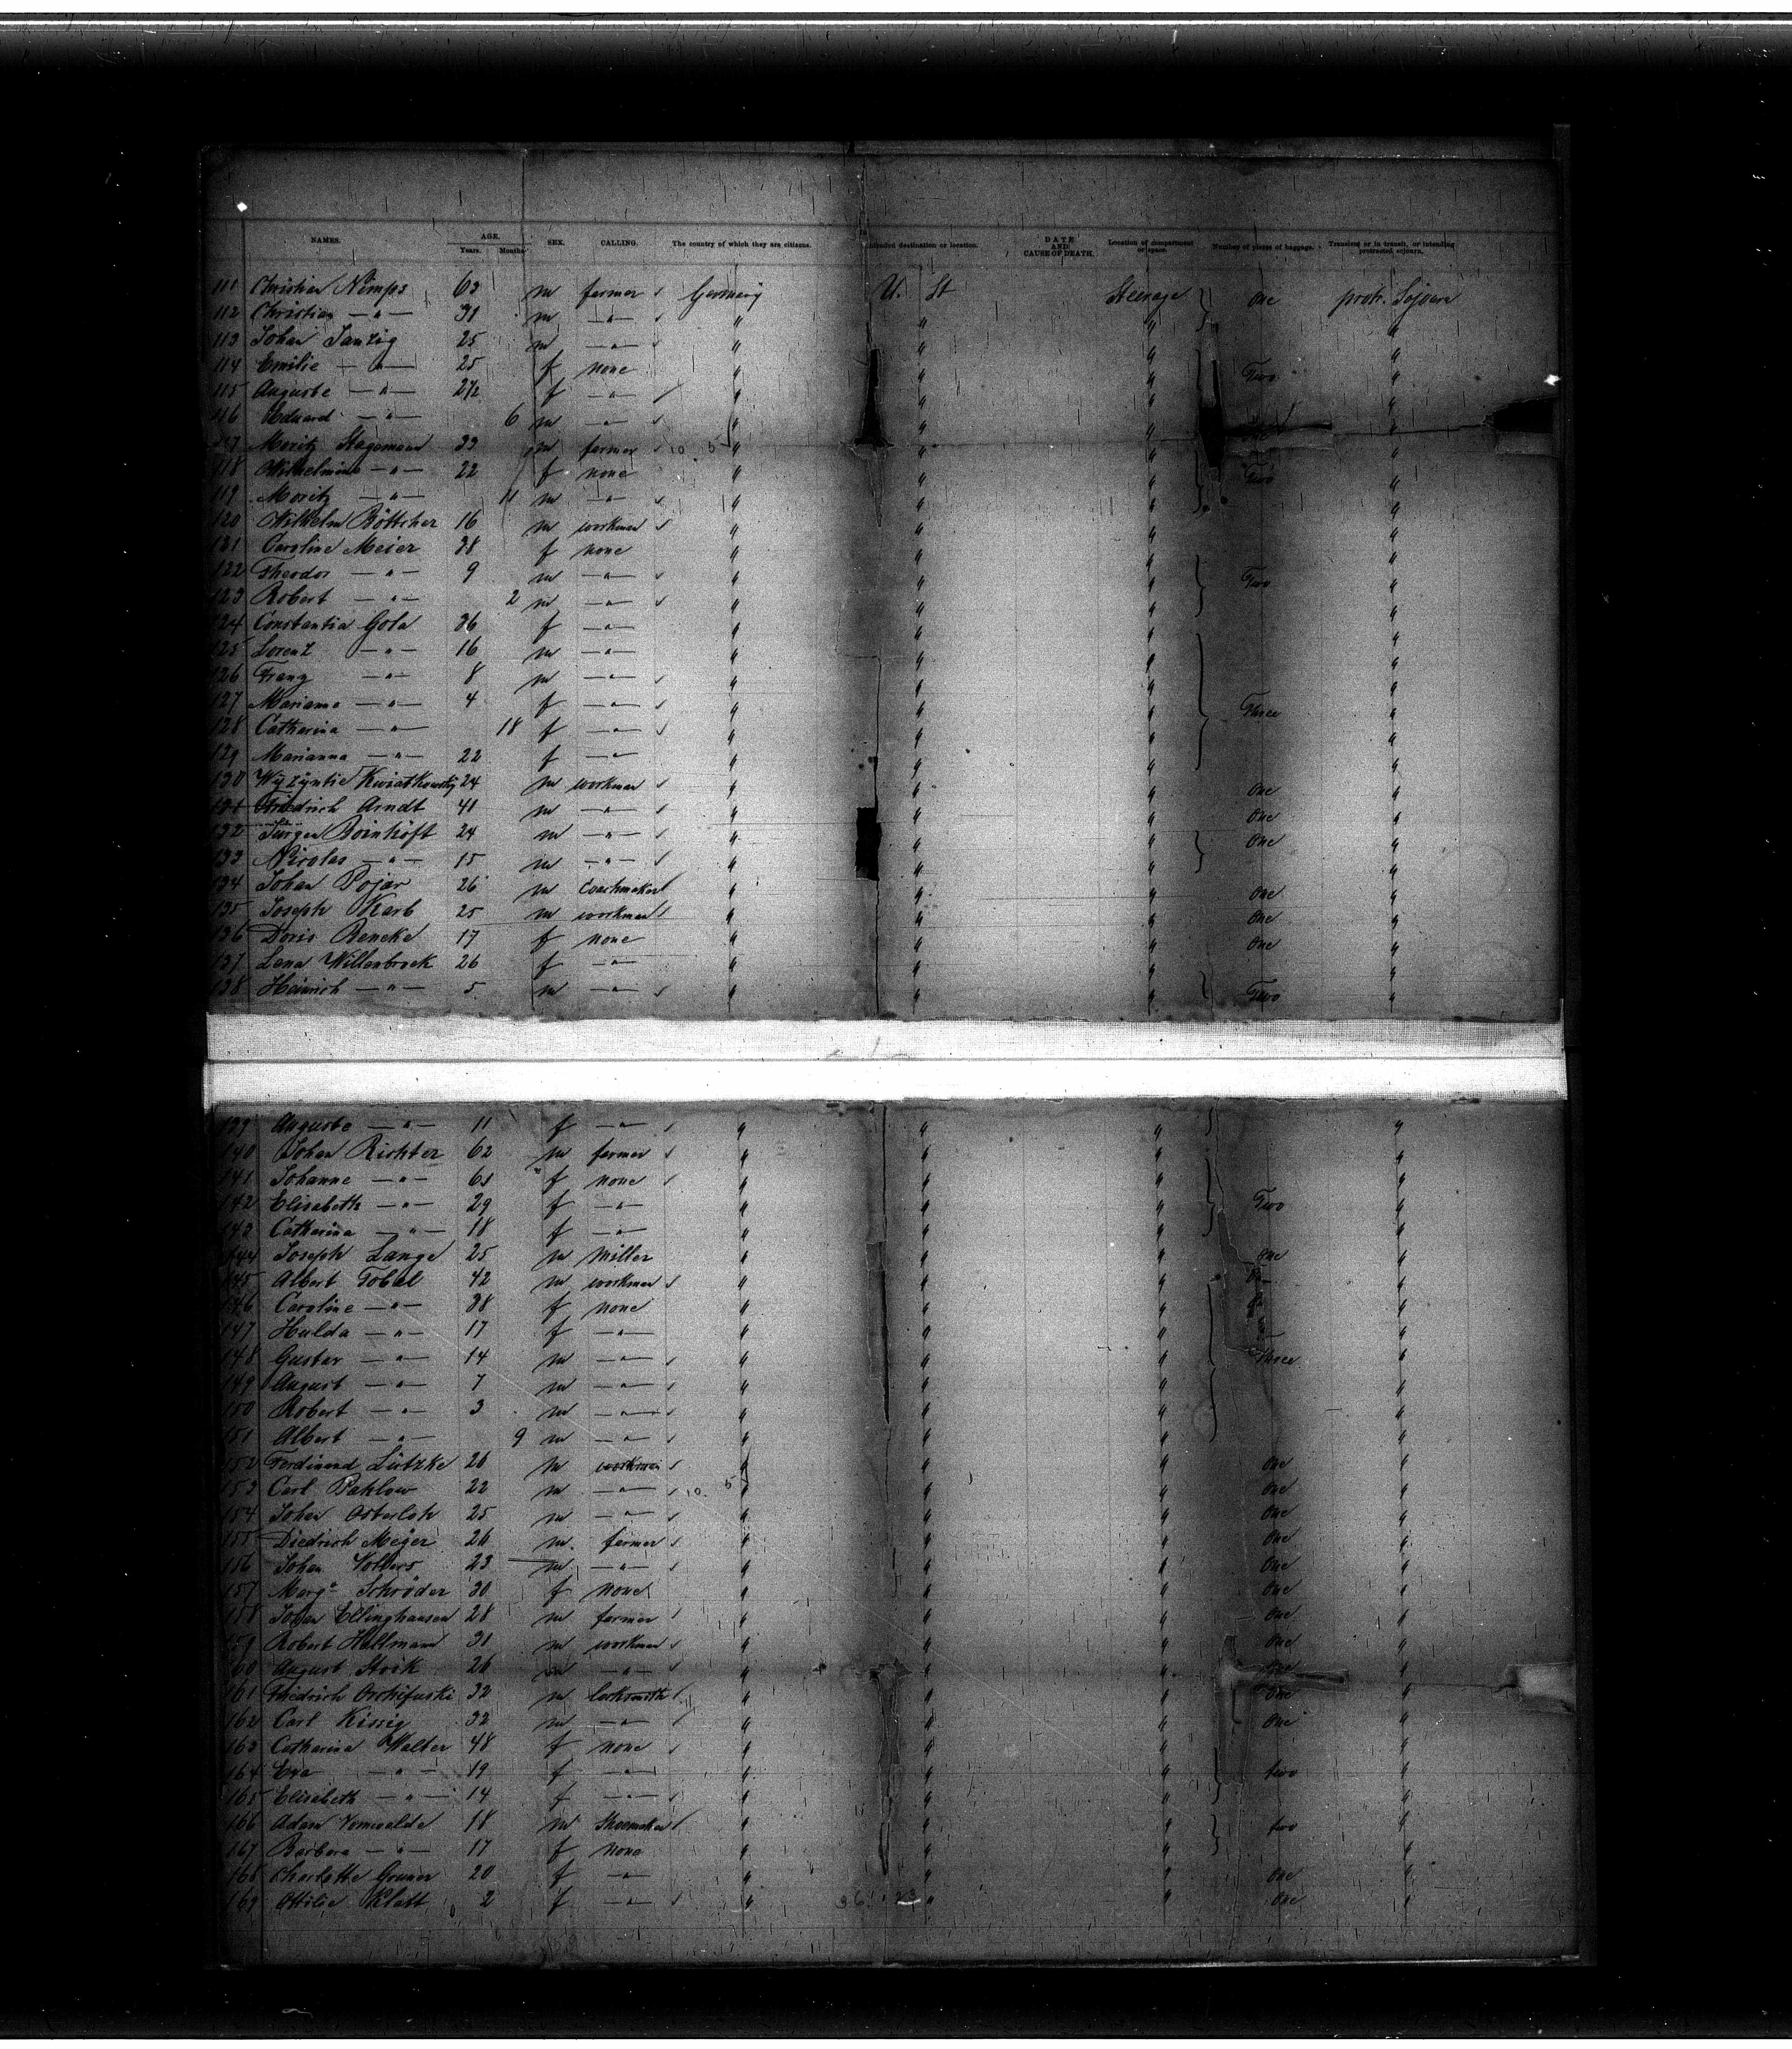 NAMES. AGE. SEX. CALLING. The country of which they are citizens. Intended destination or location. DATE AND CAUSE OF DEATH. Location of compartment or space. Number of pieces of baggage. Transient or in transit, or intending protracted sojourn.
Years. Months
111 Christian Nemps 63 m farmer Germany U. St Steerage One protr. Sojourn
112 Christian — " — 31 m — " — " " " "
113 Johan Janzig 25 m — " — " " " "
114 Emilie — " — 25 f none " " " Two "
115 Auguste — " — 2 1/2 f — " — " " " "
116 Eduard — " — 6 m — " — " " " "
117 Moritz Stagemann 33 m farmer 10 5 " " " "
118 Wilhelmine — " — 22 f none " " " Two "
119 Moritz — " — 11 m — " — " " " "
120 Wilhelm Böttcher 16 m workman " " " "
121 Caroline Meier 38 f none " " " "
122 Theodor — " — 9 m — " — " " " Two "
123 Robert — " — 2 m — " — " " " "
124 Constantia Gola 36 f — " — " " " "
125 Lorenz — " — 16 m — " — " " " "
126 Franz — " — 8 m — " — " " " "
127 Marianna — " — 4 f — " — " " " Three "
128 Catharina — " — 18 f — " — " " " "
129 Marianna — " — 22 f — " — " " " "
130 Kwiatkowsky 24 m workman " " " One "
131 Friedrich Arndt 41 m — " — " " " One "
132 Jürgen Boinhöft 24 m — " — " " " One "
133 Nicolas — " — 15 m — " — " " " "
134 Johan Pojar 26 m Coachmaker " " " One "
135 Joseph Karb 25 m workman " " " One "
136 Doris Beneke 17 f none " " " One "
137 Lena Willenbrock 26 f — " — " " " "
138 Heinrich — " — 5 m — " — " " " Two "
139 Auguste — " — 11 f — " — " " " "
140 Johan Richter 62 m farmer " " " "
141 Johanne — " — 61 f none " " " "
142 Elisabeth — " — 29 f — " — " " " Two "
143 Catharina — " — 18 f — " — " " " "
144 Joseph Lange 25 m Miller " " " One "
145 Albert Tobal 42 m workman " " " "
146 Caroline — " — 38 f none " " " "
147 Hulda — " — 17 f — " — " " " "
148 Gustav — " — 14 m — " — " " " Three "
149 August — " — 7 m — " — " " " "
150 Robert — " — 3 m — " — " " " "
151 Albert — " — 9 m — " — " " " "
152 Ferdinand Lützke 26 m workman " " " One "
153 Carl Pahlow 22 m — " — 10. 5 " " " One "
154 Johan Osterloh 25 m — " — " " " One "
155 Diedrich Meÿer 26 m. farmer " " " One "
156 Johan Volbers 23 m — " — " " " One "
157 Marg. Schröder 30 f none " " " One "
158 Johan Ellinghausen 28 m farmer " " " One "
159 Robert Hallmann 31 m workman " " " One "
160 August Stoik 26 m — " — " " " One "
161 Friedrich 32 m locksmith " " " One "
162 Carl Kissig 32 m — " — " " " One "
163 Catharina Walter 48 f none " " " "
164 Eva — " — 19 f — " — " " " two "
165 Elisabeth — " — 14 f — " — " " " "
166 Adam 18 m Shoemaker " " " two "
167 Barbara — " — 17 f none " " " "
168 Charlotte Gruner 20 f — " — " " " One "
169 Ottilie Klatt 2 f — " — " " " One "